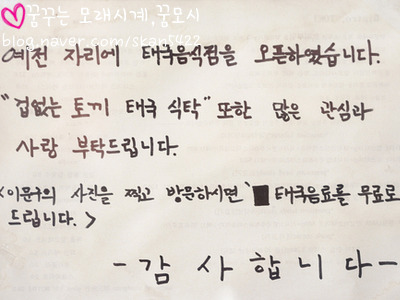 꿈꾸는 모래시계,꿈모시
blog.naver.com/skan5422
예전 자리에 태국음식점을 오픈하였습니다.
"겁없는 토끼 태국 식탁" 또한 많은 관심과
사랑 부탁드립니다.
<이문구의 사진을 찍고 방문하시면 태국음료를 무료로
드립니다.>
-감사합니다-